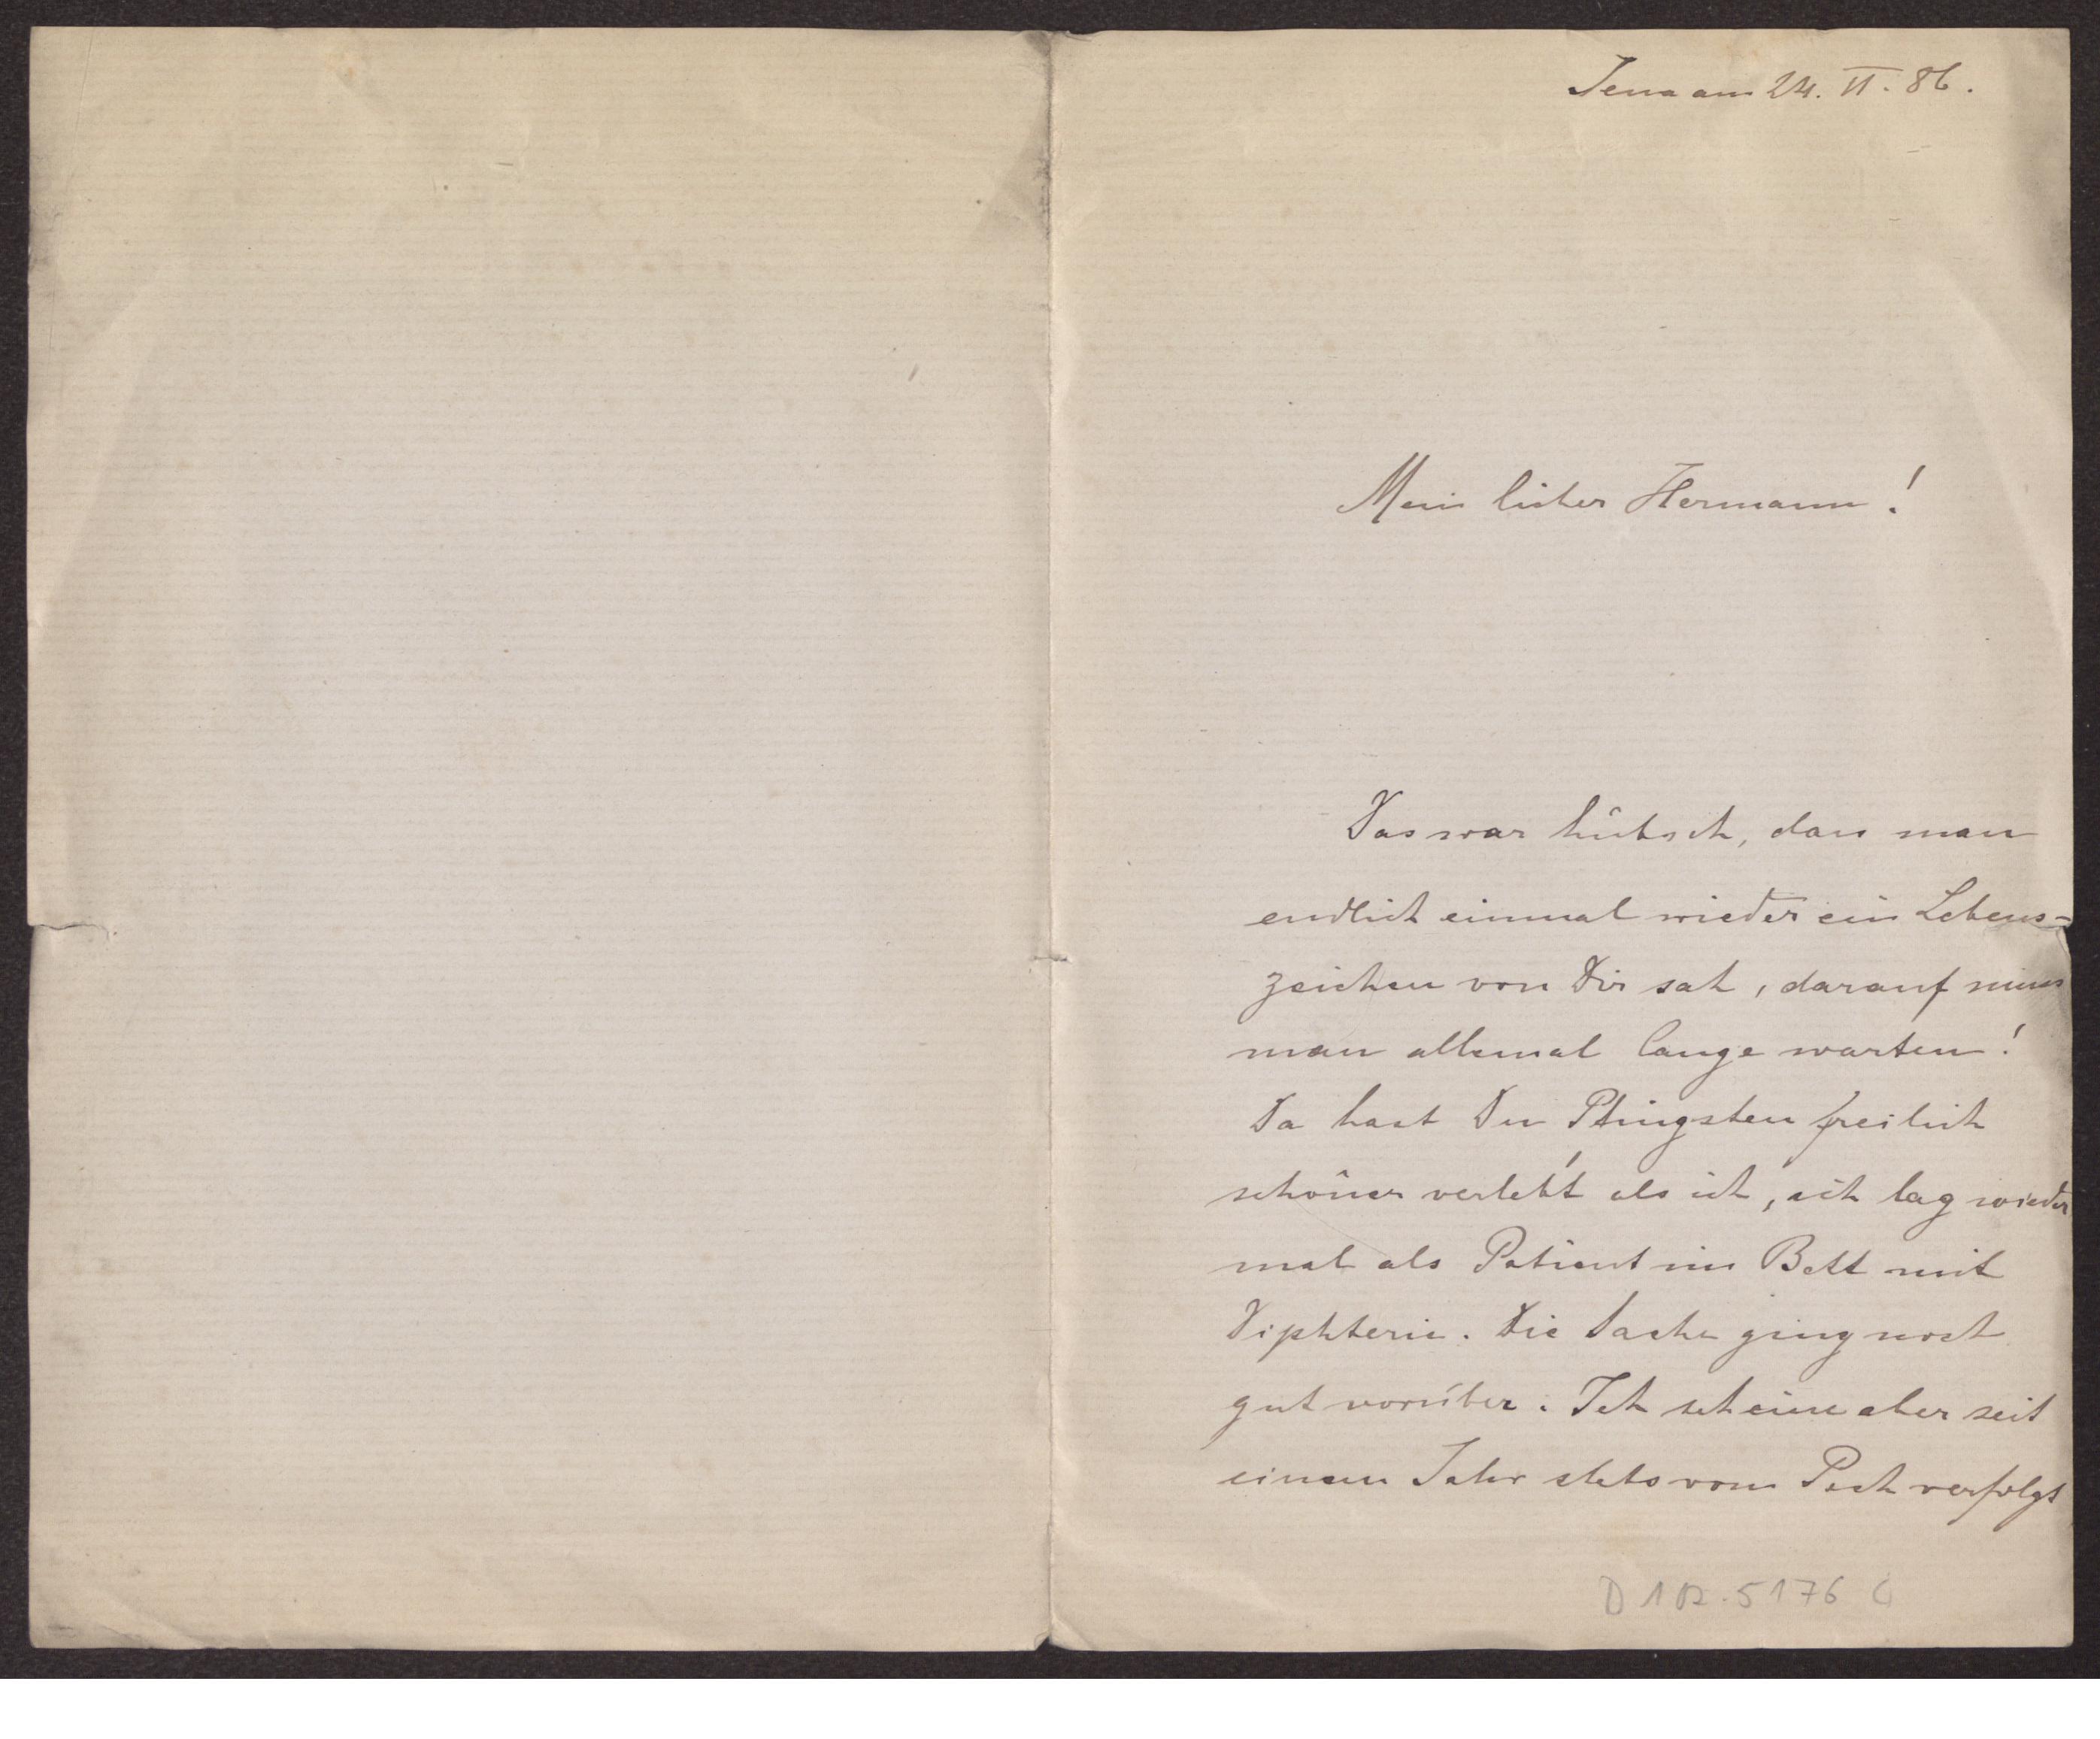 Jena am 24. VI. 86.
Mein lieber Hermann!
Das war hübsch, dass man
endlich einmal wieder ein Lebens-
zeichen von Dir sah, darauf muss
man allemal lange warten!
Da hast Du Pfingsten freilich
schöner verlebt als ich, ich lag wieder
mal als Patient im Bett mit
Diphterie. Die Sache ging noch
gut vorüber. Ich scheine aber seit
einem Jahr stets vom Pech verfolgt
5176